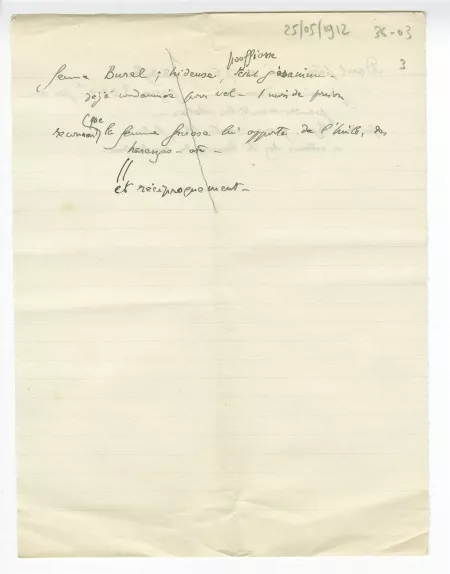 25/05/1912 36-03
3
pouffiasse
femme Burel ; hideuse, teint géranium -
déjà condamnée pour vol - 1 mois de prison
que
reconnaît la femme fosse lui apporta de l'huile, des
harengs - etc -
et réciproquement -